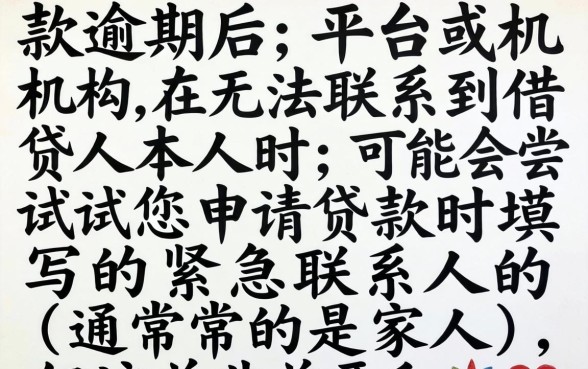 款逾期后；平台或机
机构,在无法联系到借
贷人本人时；可能会尝
试试您申请贷款时填
写的紧急联系人的
（通常常的是家人），